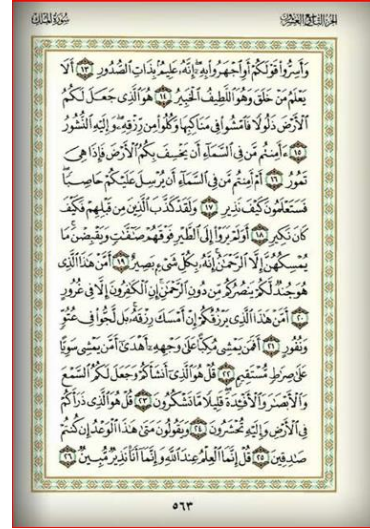 سورة الملك
الجزء التاسع والعشرون
وَأَسِرُّوا۟ قَوْلَكُمْ أَوِ ٱجْهَرُوا۟ بِهِۦٓ إِنَّهُۥ عَلِيمٌۢ بِذَاتِ ٱلصُّدُورِ ١٣ أَلَا
يَعْلَمُ مَنْ خَلَقَ وَهُوَ ٱللَّطِيفُ ٱلْخَبِيرُ ١٤ هُوَ ٱلَّذِى جَعَلَ لَكُمُ
ٱلْأَرْضَ ذَلُولًا فَٱمْشُوا۟ فِى مَنَاكِبِهَا وَكُلُوا۟ مِن رِّزْقِهِۦ وَإِلَيْهِ ٱلنُّشُورُ
١٥ ءَأَمِنتُم مَّن فِى ٱلسَّمَآءِ أَن يَخْسِفَ بِكُمُ ٱلْأَرْضَ فَإِذَا هِىَ
تَمُورُ ١٦ أَمْ أَمِنتُم مَّن فِى ٱلسَّمَآءِ أَن يُرْسِلَ عَلَيْكُمْ حَاصِبًا
فَسَتَعْلَمُونَ كَيْفَ نَذِيرِ ١٧ وَلَقَدْ كَذَّبَ ٱلَّذِينَ مِن قَبْلِهِمْ فَكَيْفَ
كَانَ نَكِيرِ ١٨ أَوَلَمْ يَرَوْا۟ إِلَى ٱلطَّيْرِ فَوْقَهُمْ صَٰٓفَّٰتٍ وَيَقْبِضْنَ مَا
يُمْسِكُهُنَّ إِلَّا ٱلرَّحْمَٰنُ إِنَّهُۥ بِكُلِّ شَىْءٍۭ بَصِيرٌ ١٩ أَمَّنْ هَٰذَا ٱلَّذِى
هُوَ جُندٌ لَّكُمْ يَنصُرُكُم مِّن دُونِ ٱلرَّحْمَٰنِ إِنِ ٱلْكَٰفِرُونَ إِلَّا فِى غُرُورٍ
٢٠ أَمَّنْ هَٰذَا ٱلَّذِى يَرْزُقُكُمْ إِنْ أَمْسَكَ رِزْقَهُۥ بَل لَّجُّوا۟ فِى عُتُوٍّ
وَنُفُورٍ ٢١ أَفَمَن يَمْشِى مُكِبًّا عَلَىٰ وَجْهِهِۦٓ أَهْدَىٰٓ أَمَّن يَمْشِى سَوِيًّا
عَلَىٰ صِرَٰطٍ مُّسْتَقِيمٍ ٢٢ قُلْ هُوَ ٱلَّذِىٓ أَنشَأَكُمْ وَجَعَلَ لَكُمُ ٱلسَّمْعَ
وَٱلْأَبْصَٰرَ وَٱلْأَفْـِٔدَةَ قَلِيلًا مَّا تَشْكُرُونَ ٢٣ قُلْ هُوَ ٱلَّذِى ذَرَأَكُمْ
فِى ٱلْأَرْضِ وَإِلَيْهِ تُحْشَرُونَ ٢٤ وَيَقُولُونَ مَتَىٰ هَٰذَا ٱلْوَعْدُ إِن كُنتُمْ
صَٰدِقِينَ ٢٥ قُلْ إِنَّمَا ٱلْعِلْمُ عِندَ ٱللَّهِ وَإِنَّمَآ أَنَا۠ نَذِيرٌ مُّبِينٌ ٢٦
٥٦٣